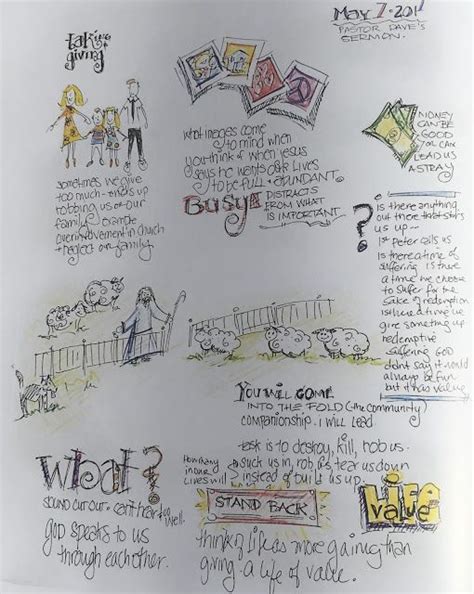 May 7·2017
PASTOR DAVE'S
SERMON.
taking
+
giving
sometimes we give
too much - ends up
robbing us of our
family example
over involvement in church
+ neglect our family
what images come
to mind when
you think of when Jesus
says he wants our lives
to be full + abundant.
BUSY
DISTRACTS
FROM WHAT
IS IMPORTANT
MONEY
CAN BE
GOOD
OR CAN
LEAD US
ASTRAY
?
is there anything
out there that
us up~
1st Peter calls us
is there a time of
suffering is there
a time we choose
to suffer for the
sake of redemption
is there a time we
give something up
redemptive
suffering GOD
didn't say it would
always be fun
but it has value
YOU WILL COME
INTO THE FOLD (the community)
companionship. i will lead
task is to destroy, kill, rob us.
suck us in, rob us, tear us down
instead of build us up.
How many
in our
lives will
What?
sound our can't hear
well.
god speaks to us
through each other.
STAND BACK
LIFE
value
think of life as more gaining than
giving - a life of value.